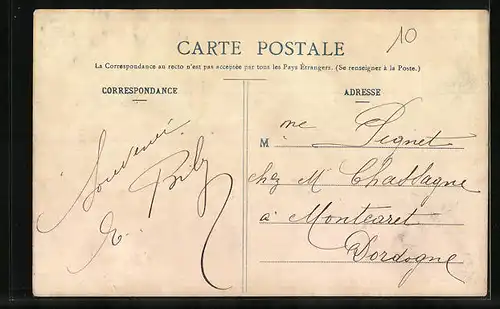 10
CARTE POSTALE
La Correspondance au recto n'est pas acceptée par tous les Pays Étrangers. (Se renseigner à la Poste.)
CORRESPONDANCE
Souvenir
E.
ADRESSE
M me Pignet
chez Mr Chassagne
à Montcaret
Dordogne